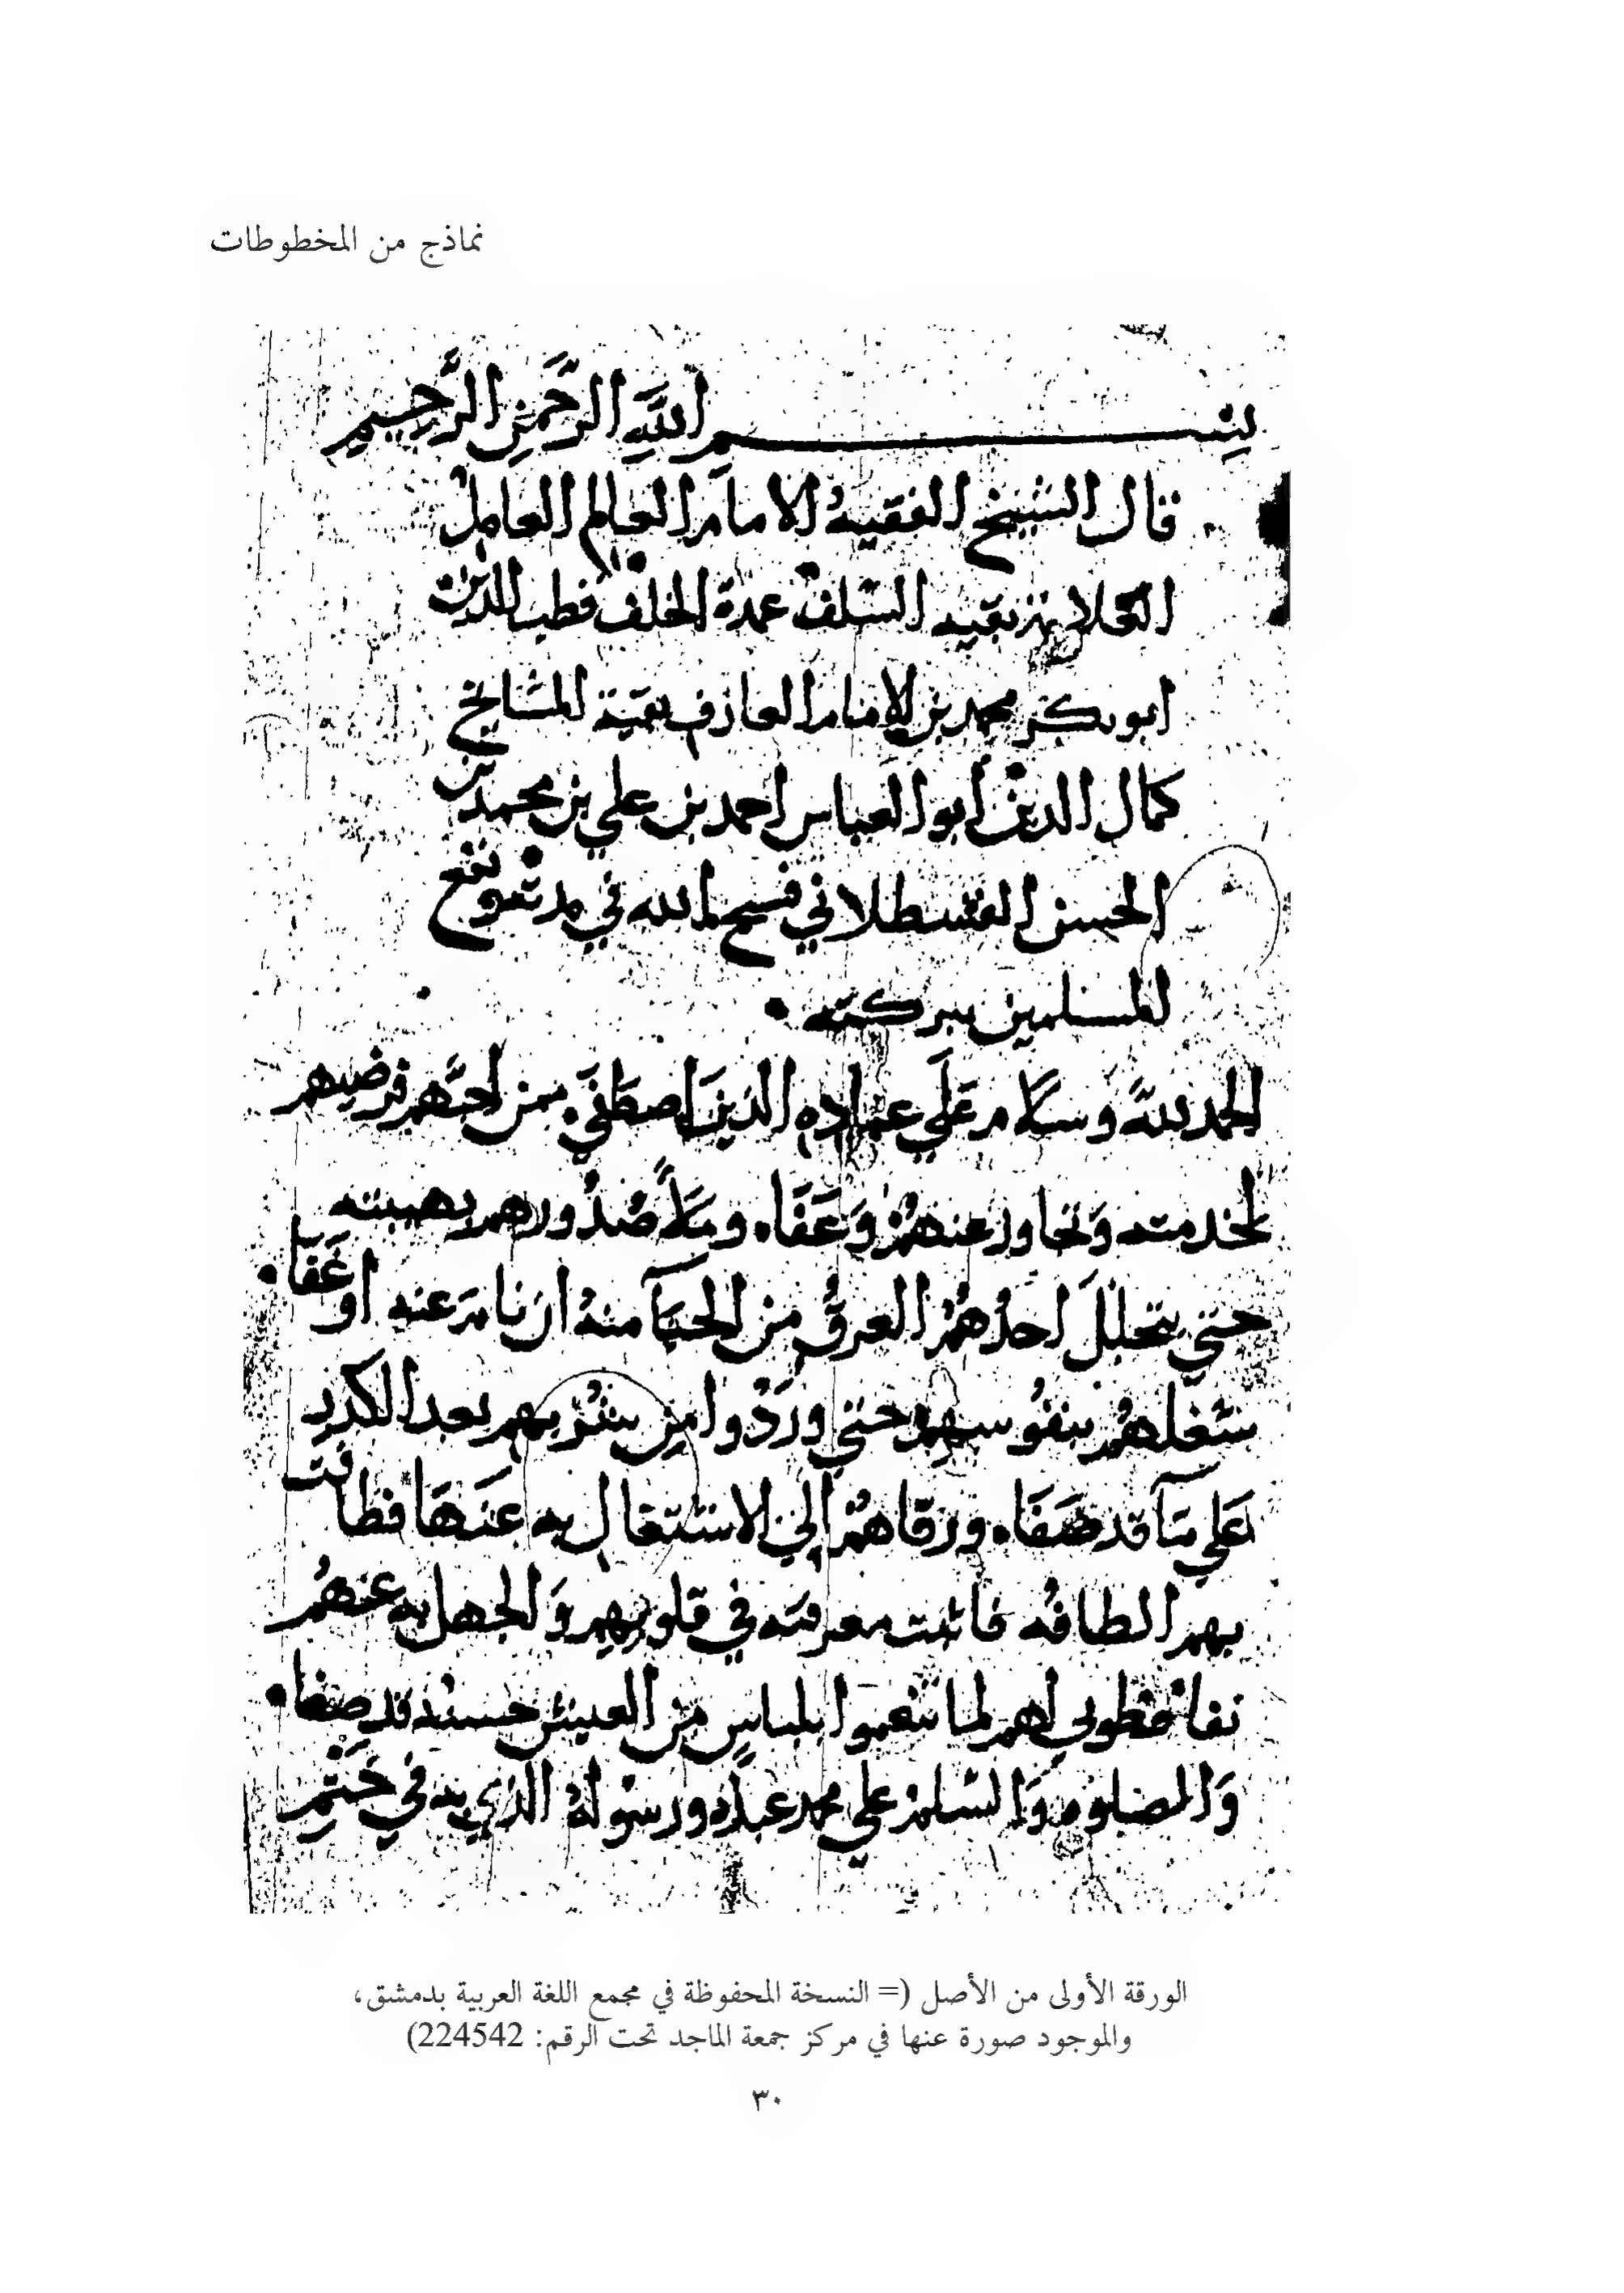 نماذج من المخطوطات
بسم الله الرحمن الرحيم
قال الشيخ الفقيه الامام العالم العامل
بقيه السلف عمدة الخلف قطب الدين
ابو بكر محمد بن الامام العارف بقية المشايخ
كمال الدين أبو العباس احمد بن علي بن محمد بن
الحسن القسطلاني فسح الله في مدته ونفع
المسلمين ببركته
الحمد لله وسلام على عباده الذين اصطفى ممن احبهم فرضيهم
لخدمته وتجاوز عنهم وعفا وملأ صدورهم بهيبته
حتي يتجلل احدهم العرق من الحيا منه ان نام عنه او غفا
شغلهم بنفوسهم حتي وردوا من شربهم بعد الكدر
علي ما قد صفا ورقاهم إلي الاشتغال به عنها فطافت
بهم الطافه فاثبت معرفته في قلوبهم والجهل به عنهم
نفا فطوبي لهم لما تنعموا بلباس من العيش حسنه قد صفا
والصلوة والسلم علي محمد عبده ورسوله الذي به في ختم
الورقة الأولى من الأصل (= النسخة المحفوظة في مجمع اللغة العربية بدمشق،
والموجود صورة عنها في مركز جمعة الماجد تحت الرقم: 224542)
٣٠